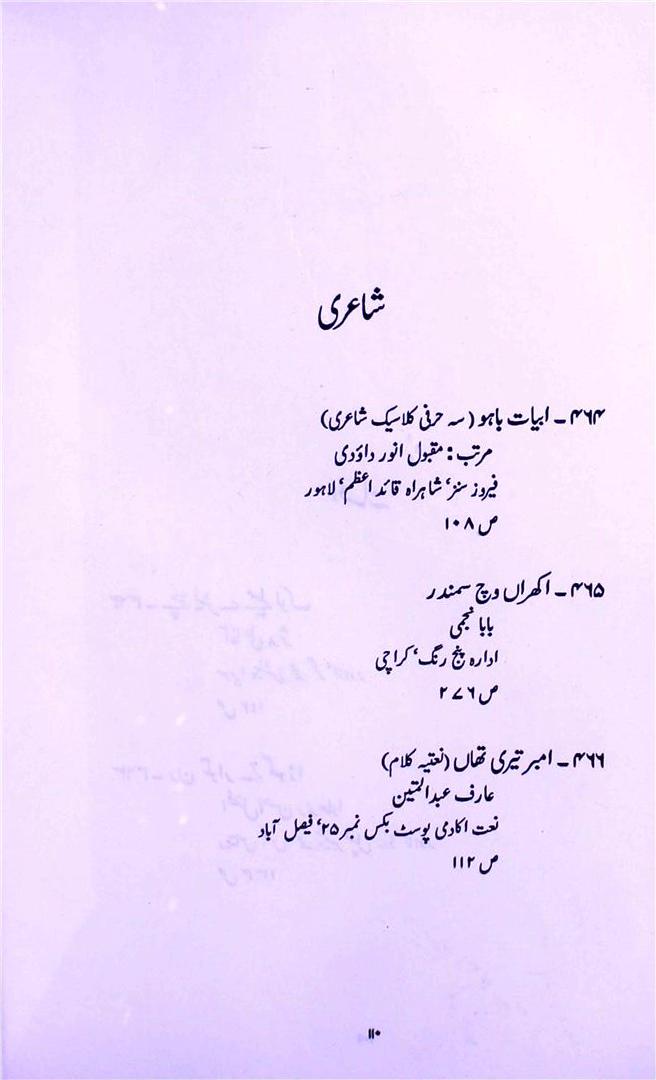 شاعری
۴۶۴ ۔ ابیات باہو (سہ حرفی کلاسیک شاعری)
مرتب : مقبول انور داؤدی
فیروز سنز‘ شاہراہ قائد اعظم‘ لاہور
ص ۱۰۸
۴۶۵ ۔ اکھراں وچ سمندر
بابا نجمی
ادارہ پنج رنگ‘ کراچی
ص ۲۷۶
۴۶۶ ۔ امبر تیری تھاں (نعتیہ کلام)
عارف عبدالمتین
نعت اکادمی پوسٹ بکس نمبر ۲۵‘ فیصل آباد
ص ۱۱۲
۱۱۰